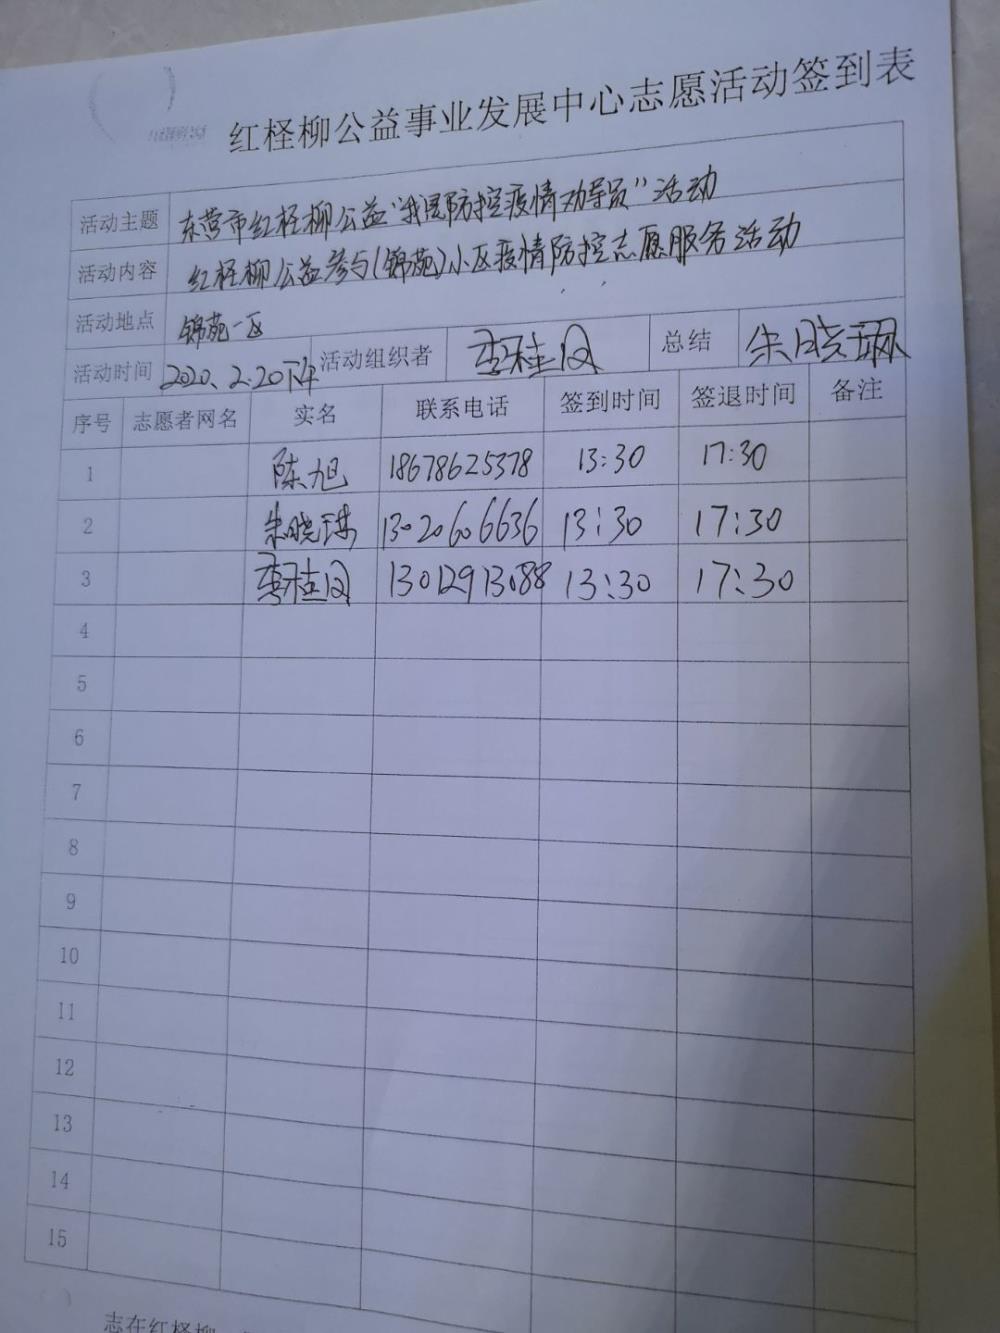 红柽柳公益事业发展中心志愿活动签到表
活动主题 东营市红柽柳公益“我是防控疫情劝导员”活动
活动内容 红柽柳公益参与(锦苑)小区疫情防控志愿服务活动
活动地点 锦苑一区
活动时间 2020.2.20下午 活动组织者 李桂风 总结 朱晓琳
序号 志愿者网名 实名 联系电话 签到时间 签退时间 备注
1 陈旭 18678625378 13:30 17:30
2 朱晓琳 13020606636 13:30 17:30
3 李桂风 13012913088 13:30 17:30
4
5
6
7
8
9
10
11
12
13
14
15
志在红柽柳